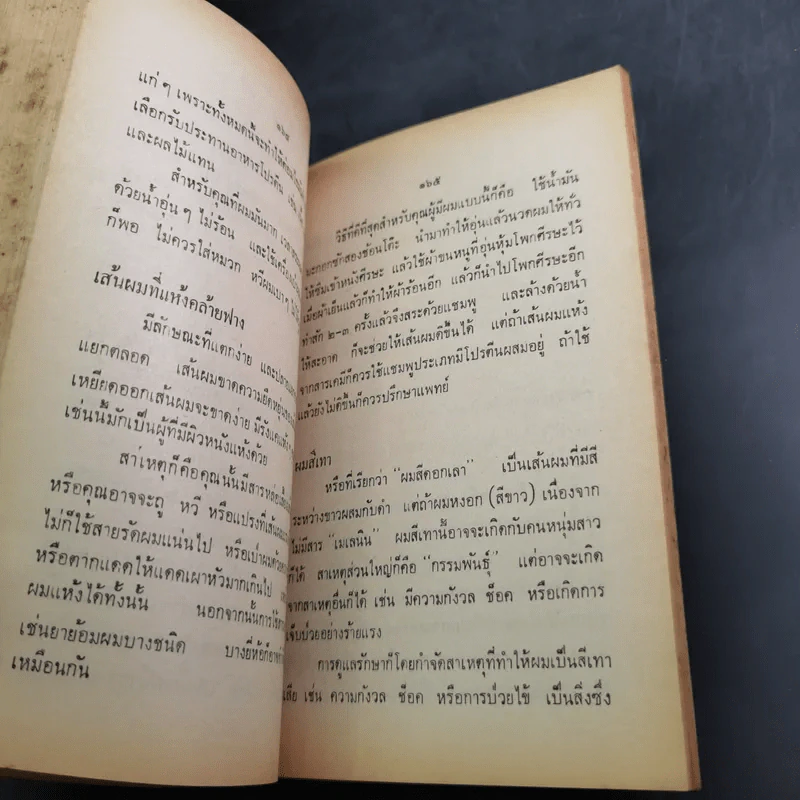 ๑๖๔
แก่ ๆ เพราะทั้งหมดนี้จะทำให้
เลือกรับประทานอาหารโปรตีน เช่น
และผลไม้แทน
สำหรับคุณที่ผมมันมาก
ด้วยน้ำอุ่น ๆ ไม่ร้อน และใช้
ก็พอ ไม่ควรใส่หมวก หวีผมเบาๆ
เส้นผมที่แห้งคล้ายฟาง
มีลักษณะที่แตกง่าย และ
แยกตลอด เส้นผมขาดความยืดหยุ่น
เหยียดออกเส้นผมจะขาดง่าย มีรังแค
เช่นนี้มักเป็นผู้ที่มีผิวหนังแห้งด้วย
สาเหตุก็คือคุณนั้นมีสารหล่อเลี้ยง
หรือคุณอาจจะถู หวี หรือแปรงที่เส้นผม
ไม่ก็ใช้สายรัดผมแน่นไป หรือเป่าผมด้วย
หรือตากแดดให้แดดเผาหัวมากเกินไป
ผมแห้งได้ทั้งนั้น นอกจากนั้นการใช้
เช่นยาย้อมผมบางชนิด บางยี่ห้อก็อาจ
เหมือนกัน
๑๖๕
วิธีที่ดีที่สุดสำหรับคุณผู้มีผมแบบนี้ก็คือ ใช้น้ำมัน
มะกอกซักสองช้อนโต๊ะ นำมาทำให้อุ่นแล้วนวดผมให้ทั่ว
ให้ซึมเข้าหนังศีรษะ แล้วใช้ผ้าขนหนูที่อุ่นหุ้มโพกศีรษะไว้
เมื่อผ้าเย็นแล้วก็ทำให้ผ้าร้อนอีก แล้วก็นำไปโพกศีรษะอีก
ทำสัก ๒-๓ ครั้งแล้วจึงสระด้วยแชมพู และล้างด้วยน้ำ
ให้สะอาด ก็จะช่วยให้เส้นผมดีขึ้นได้ แต่ถ้าเส้นผมแห้ง
จากสารเคมีก็ควรใช้แชมพูประเภทมีโปรตีนผสมอยู่ ถ้าใช้
แล้วยังไม่ดีขึ้นก็ควรปรึกษาแพทย์
ผมสีเทา
หรือที่เรียกว่า "ผมสีดอกเลา" เป็นเส้นผมที่มีสี
ระหว่างขาวผสมกับดำ แต่ถ้าผมหงอก (สีขาว) เนื่องจาก
ไม่มีสาร "เมเลนิน" ผมสีเทานี้อาจจะเกิดกับคนหนุ่มสาว
ก็ได้ สาเหตุส่วนใหญ่ก็คือ "กรรมพันธุ์" แต่อาจจะเกิด
จากสาเหตุอื่นก็ได้ เช่น มีความกังวล ช็อค หรือเกิดการ
เจ็บป่วยอย่างร้ายแรง
การดูแลรักษาก็โดยกำจัดสาเหตุที่ทำให้ผมเป็นสีเทา
เสีย เช่น ความกังวล ช็อค หรือการป่วยไข้ เป็นสิ่งซึ่ง